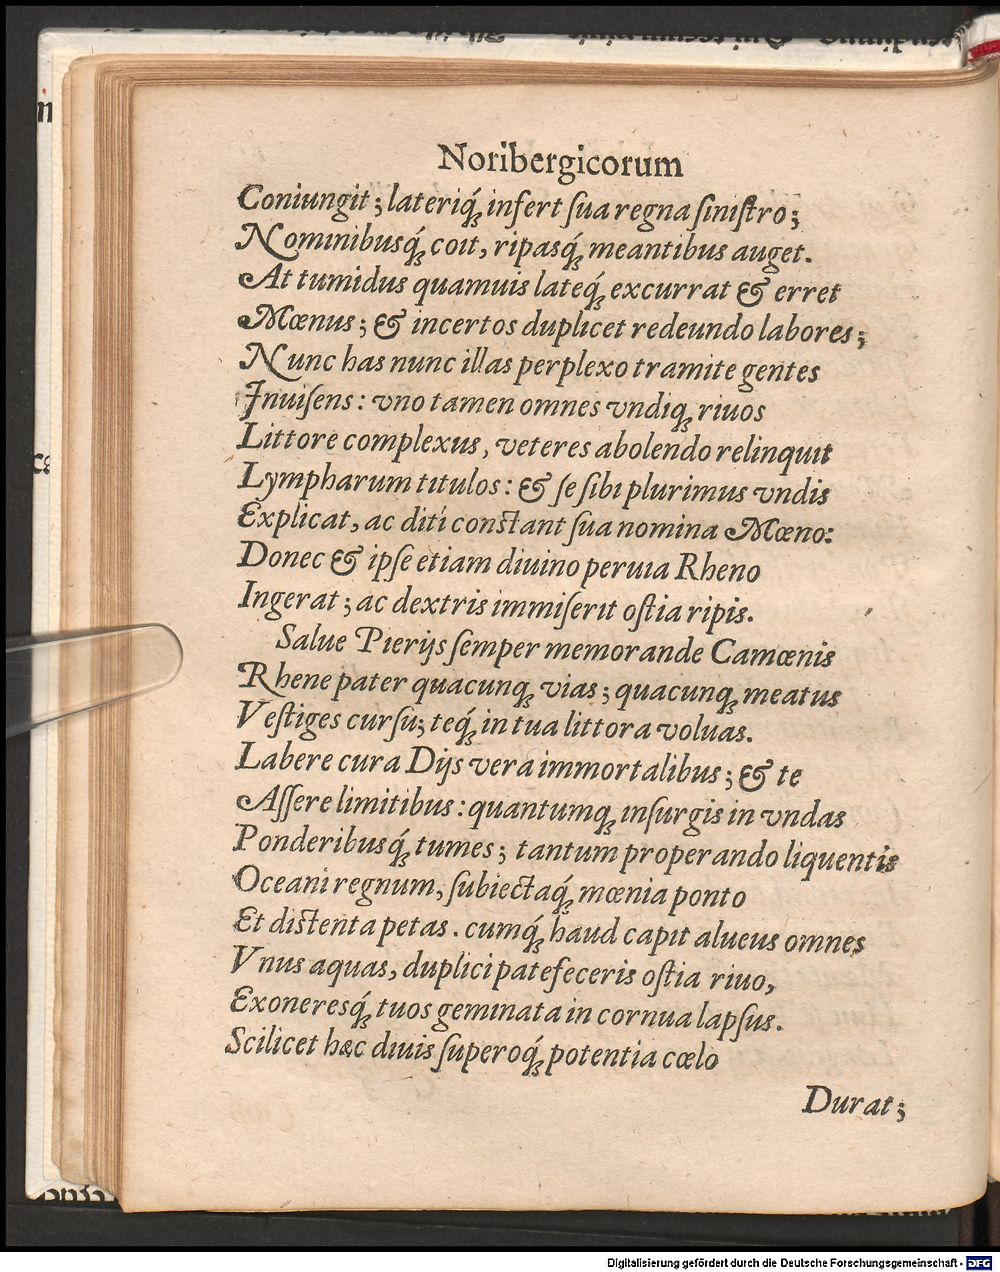 Noribergicorum
Coniungit; lateriq́ꝫ infert ſua regna ſiniſtro;
Nominibusq́ꝫ coit, ripasq́ꝫ meantibus auget.
At tumidus quamuis lateq́ꝫ excurrat & erret
Mœnus; & incertos duplicet redeundo labores;
Nunc has nunc illas perplexo tramite gentes
Inuiſens: vno tamen omnes vndiqꝫ riuos
Littore complexus, veteres abolendo relinquit
Lympharum titulos: & ſe ſibi plurimus vndis
Explicat, ac diti constant ſua nomina Mœno:
Donec & ipſe etiam diuino peruia Rheno
Ingerat; ac dextris immiſerit oſtia ripis.
Salue Pierijs ſemper memorande Camœnis
Rhene pater quacunqꝫ vias; quacunqꝫ meatus
Veſtiges curſu; teq́ꝫ in tua littora voluas.
Labere cura Dijs vera immortalibus; & te
Aſſere limitibus: quantumqꝫ inſurgis in vndas
Ponderibusq́ꝫ tumes; tantum properando liquentis
Oceani regnum, ſubiectaq́ꝫ mœnia ponto
Et distenta petas. cumq́ꝫ haud capit alueus omnes
Vnus aquas, duplici patefeceris oſtia riuo,
Exoneresq́ꝫ tuos geminata in cornua lapſus.
Scilicet hæc diuis ſuperoq́ꝫ potentia cœlo
Durat;
Digitalisierung gefördert durch die Deutsche Forschungsgemeinschaft - DFG